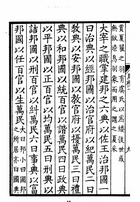 夏翟之羽有虞氏以為緌後世或
大宰之職掌建邦之六典以佐王治邦國一
曰治典以經邦國以治官府以紀萬民二曰
教典以安邦國以教官府以擾萬民三曰禮
典以和邦國以統百官以諧萬民四曰政典
以平邦國以正百官以均萬民五曰刑典以
詰邦國以刑百官以糾萬民六曰事典以富
邦國以任百官以生萬民大曰邦小曰國